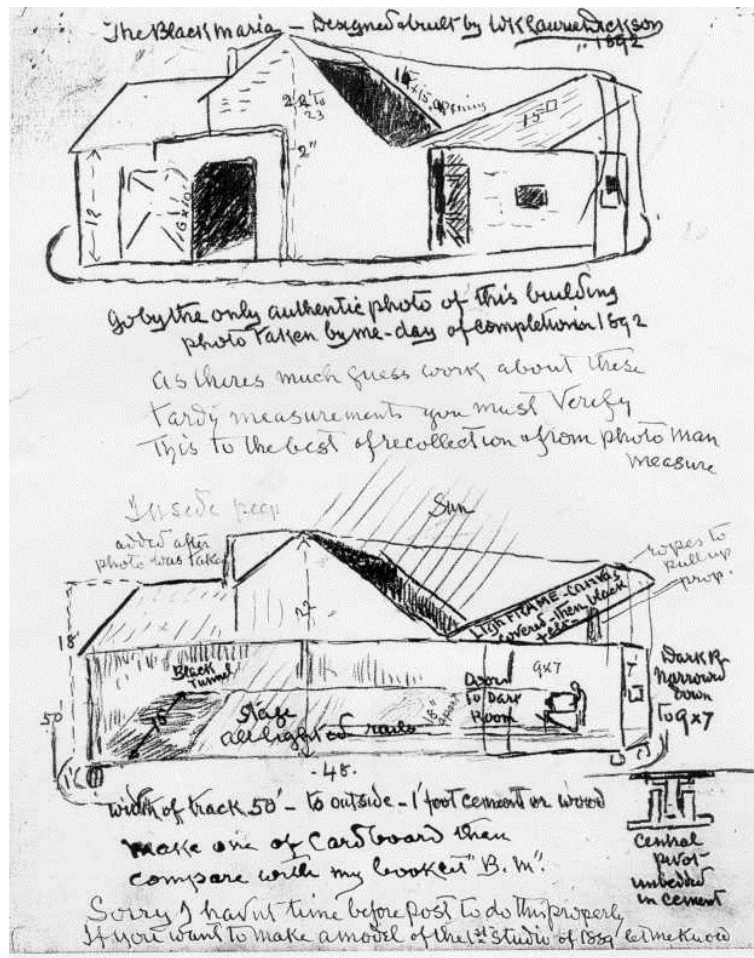 The Black Maria – Designed & built by WK Laurie Dickson
" 1892
15 x 15 opening
22 to
23
15
2"
12
go by the only authentic photo of this building
photo taken by me – day of completion in 1892
As theres much guess work about these
tardy measurements you must Verefy
This to the best of recollection & from photo man
measure
Inside peep
Sun
added after
photo was taken
ropes to
pull up
prop.
Light FRAME – Canvas
covered – then black
felt –
18
Black
Tunnel
Door
To Dark
Room
9x7
Dark R–
narrowed
down
to 9x7
50'
15'
Stage
all lighted
rails
- 48. -
width of track 50' – to outside – 1' foot cement or wood
make one of Cardboard then
compare with my booklet "B.M".
central
pivot –
imbedded
in cement
Sorry I havnt time before post to do this properly
If you want to make a model of the 1st Studio of 1889 let me know